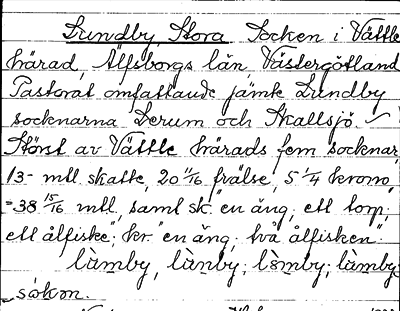 Lundby, Stora Socken i Vättle
härad, Älfsborgs län, Västergötland
Pastorat omfattande jämte Lundby
socknarna Lerum och Skallsjö.
Störst av Vättle härads fem socknar,
13 - mtl. skatte, 20 1/16 frälse, 5 1/4 krono,
= 38 15/16 mtl, samt sk. "en äng, ett torp,
ett ålfiske", kr. "en äng, två ålfisken".
lùmby, lùnby; lò̤mby; làmby-
sòkən.